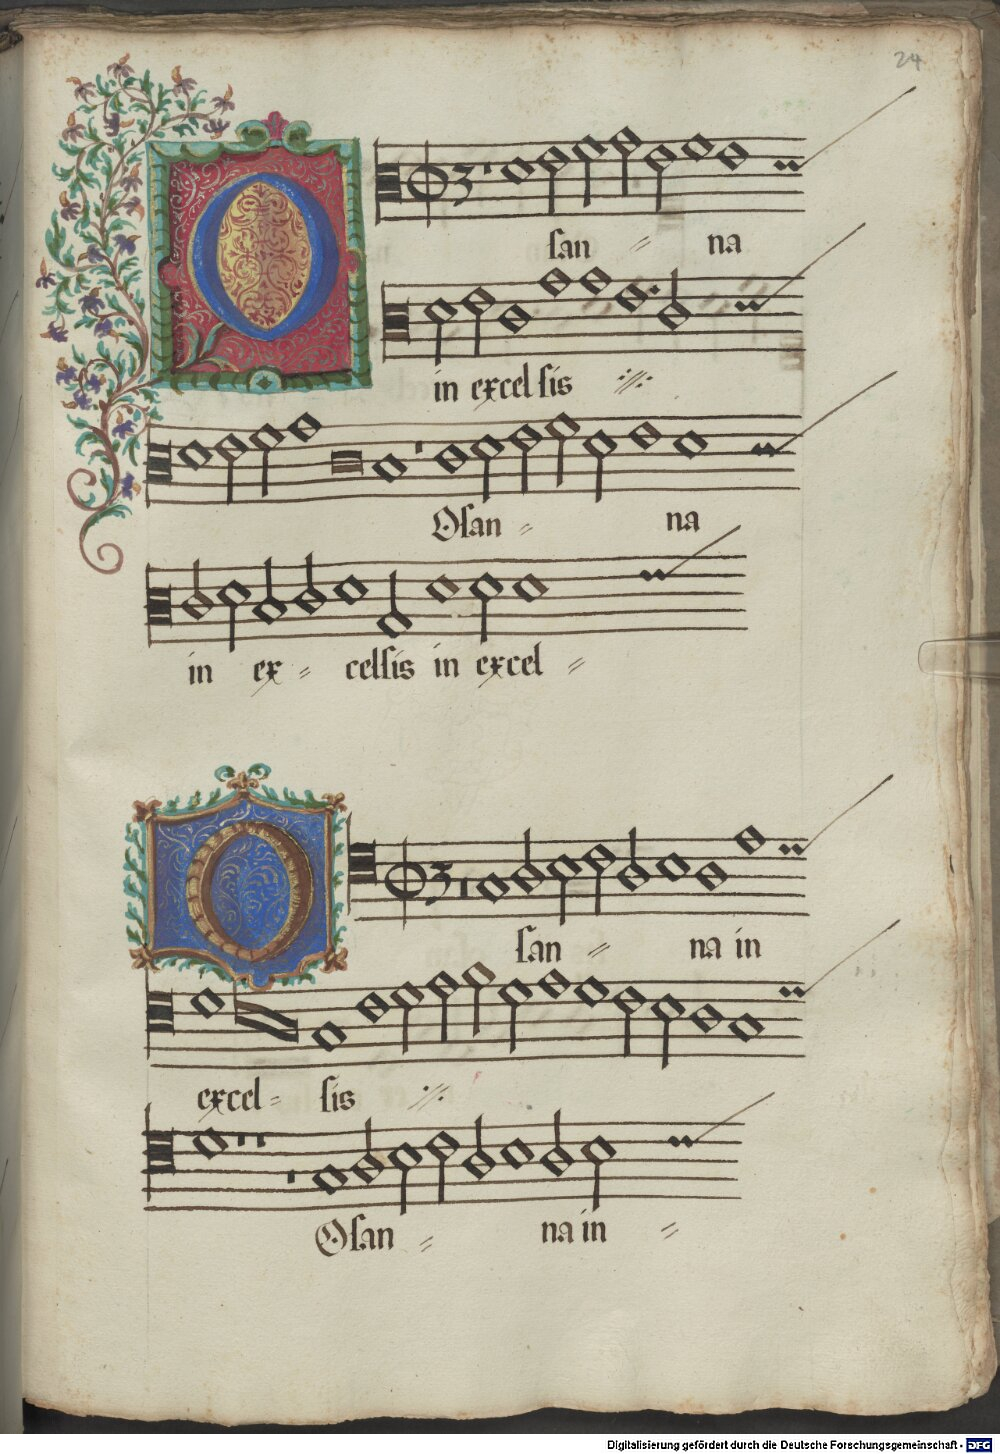 24
O ſan = na
in excelſis :||:
Oſan = na
in ex = celſis in excel =
O ſan = na in
excel = ſis :||:
Oſan = na in =
Digitalisierung gefördert durch die Deutsche Forschungsgemeinschaft - DFG